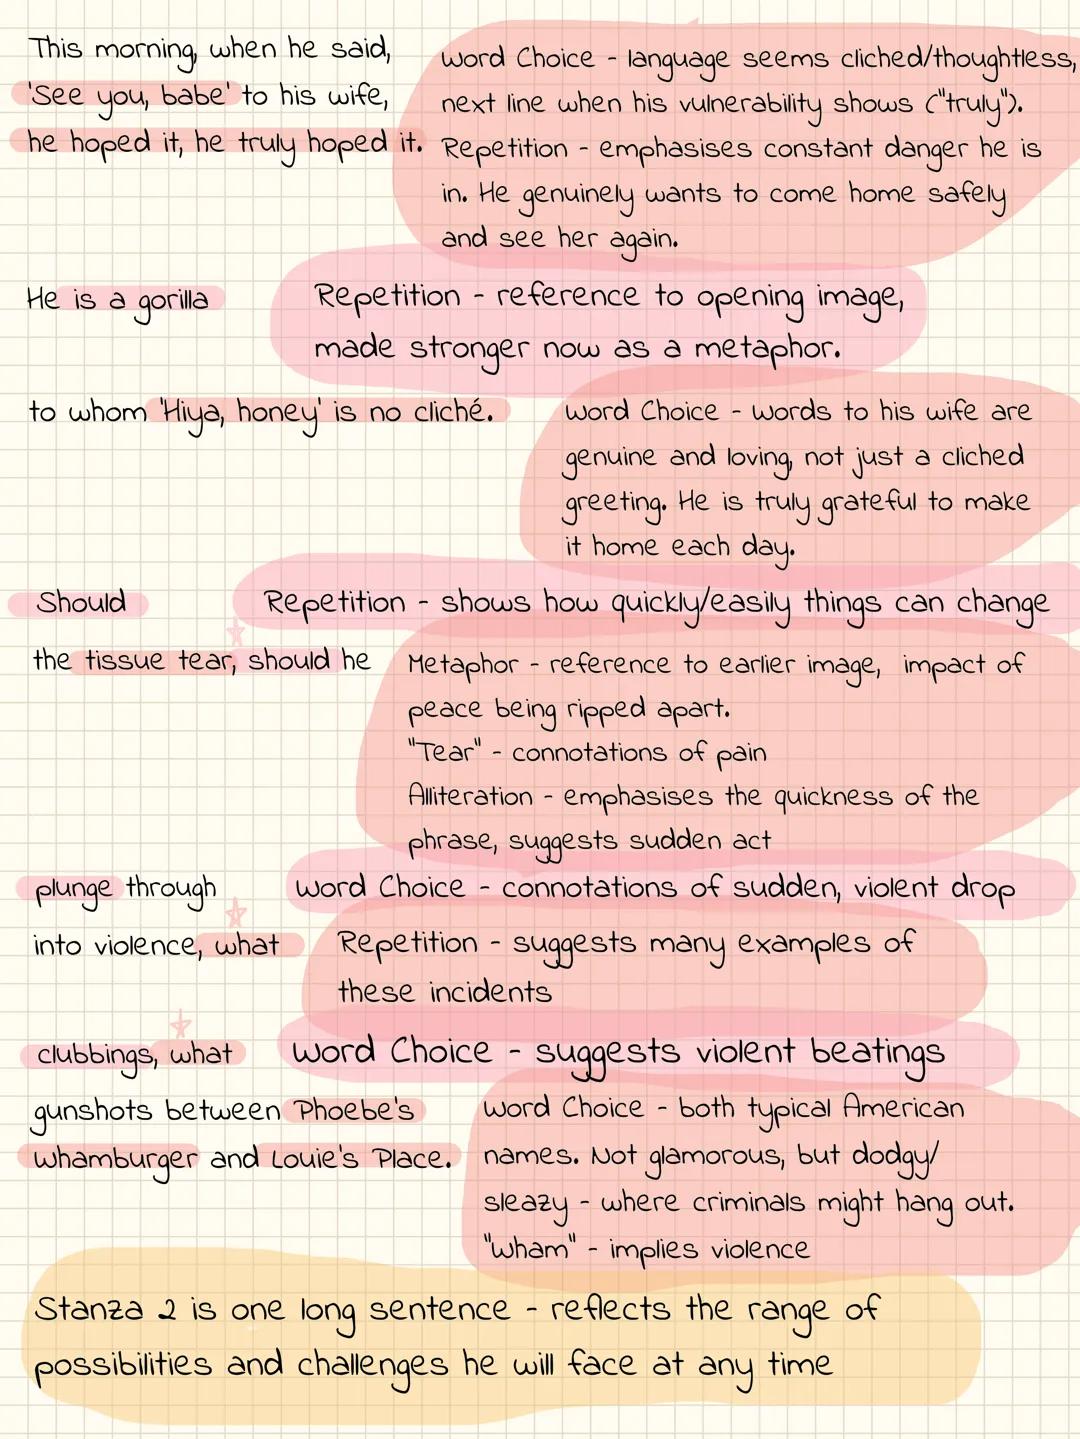 This morning, when he said,
'See you, babe' to his wife,
he hoped it, he truly hoped it.
Word Choice - language seems cliched/thoughtless,
next line when his vulnerability shows ("truly").
Repetition - emphasises constant danger he is
in. He genuinely wants to come home safely
and see her again.
He is a gorilla
Repetition - reference to opening image,
made stronger now as a metaphor.
to whom 'Hiya, honey' is no cliché.
Word Choice - words to his wife are
genuine and loving, not just a cliched
greeting. He is truly grateful to make
it home each day.
Should
Repetition - shows how quickly/easily things can change
the tissue tear, should he
Metaphor - reference to earlier image, impact of
peace being ripped apart.
"Tear" - connotations of pain
Alliteration - emphasises the quickness of the
phrase, suggests sudden act
plunge through
Word Choice - connotations of sudden, violent drop
into violence, what
Repetition - suggests many examples of
these incidents
clubbings, what
Word Choice - suggests violent beatings
gunshots between Phoebe's
Whamburger and Louie's Place.
Word Choice - both typical American
names. Not glamorous, but dodgy/
sleazy - where criminals might hang out.
"Wham" - implies violence
Stanza 2 is one long sentence - reflects the range of
possibilities and challenges he will face at any time